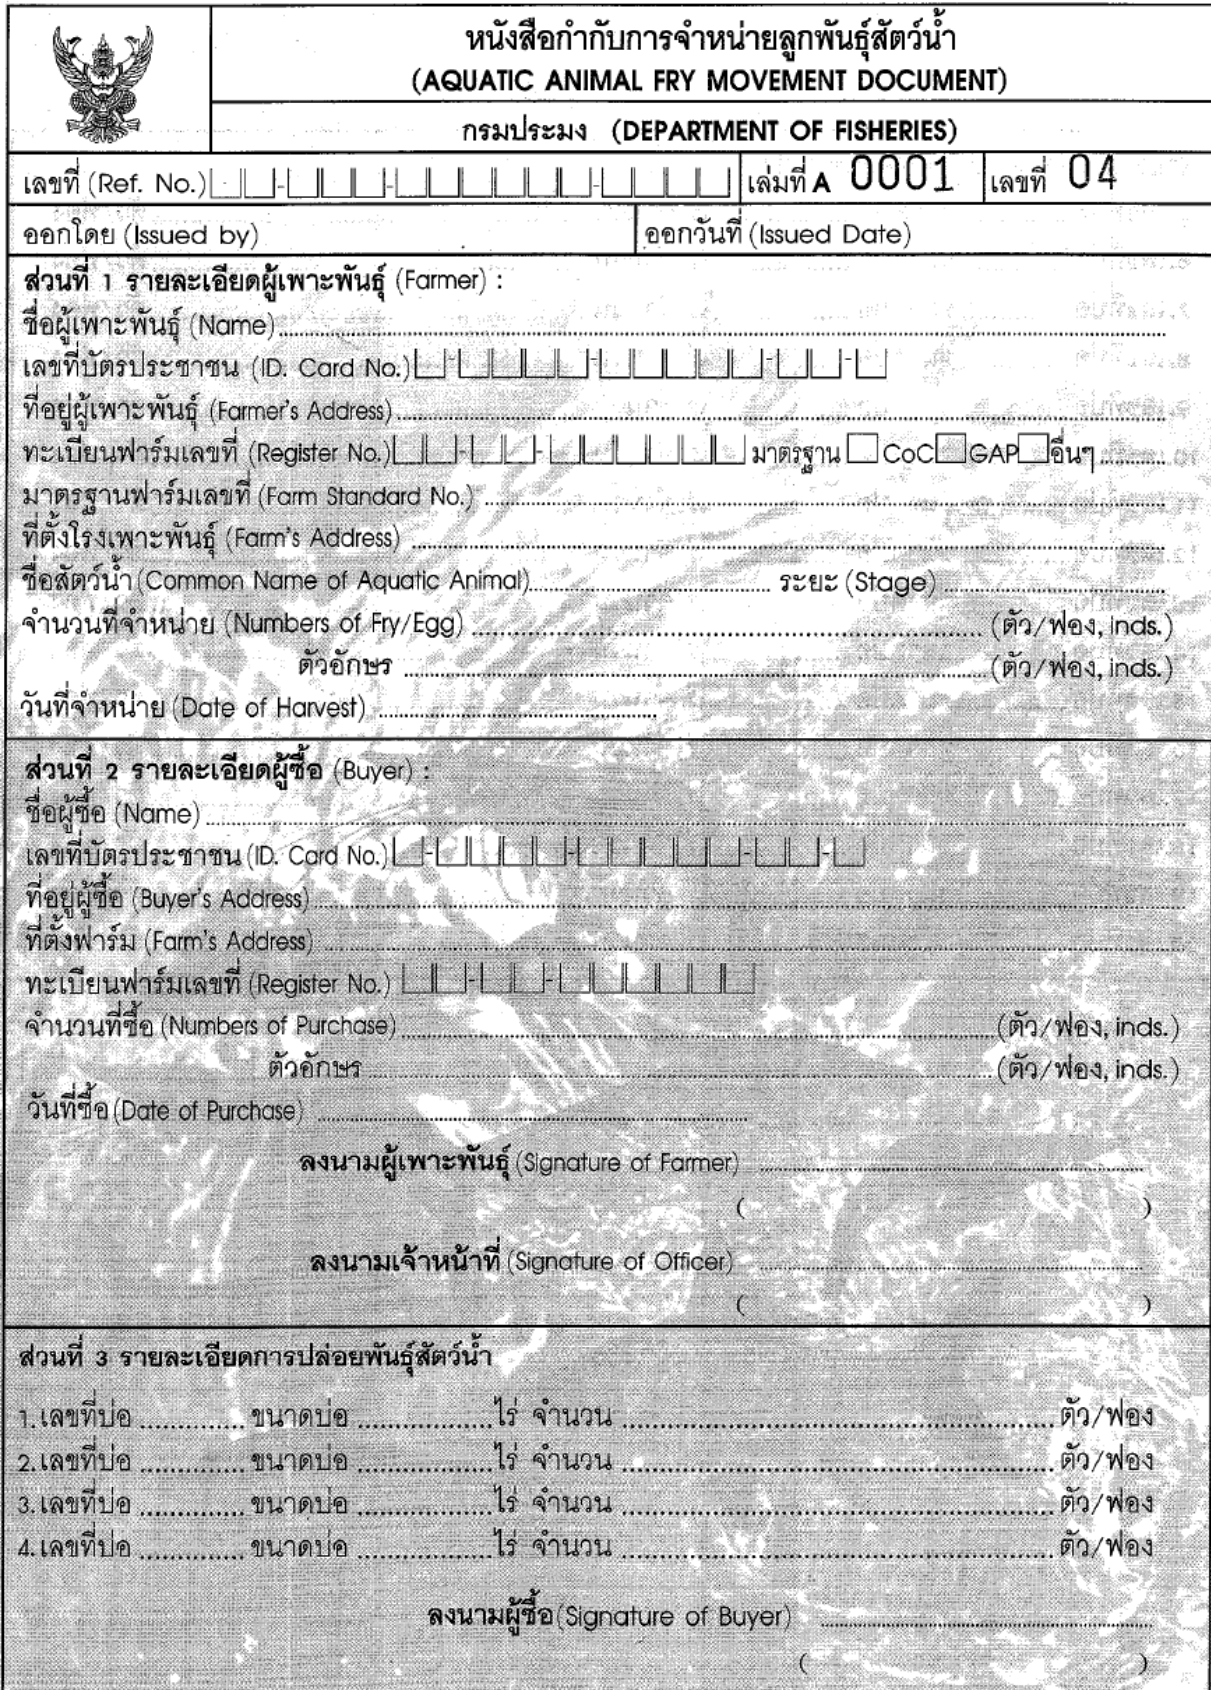 หนังสือกำกับการจำหน่ายลูกพันธุ์สัตว์น้ำ
(AQUATIC ANIMAL FRY MOVEMENT DOCUMENT)
กรมประมง (DEPARTMENT OF FISHERIES)
เลขที่ (Ref. No.) เล่มที่ A 0001 เลขที่ 04
ออกโดย (Issued by) ออกวันที่ (Issued Date)
ส่วนที่ 1 รายละเอียดผู้เพาะพันธุ์ (Farmer) :
ชื่อผู้เพาะพันธุ์ (Name)
เลขที่บัตรประชาชน (ID. Card No.)
ที่อยู่ผู้เพาะพันธุ์ (Farmer's Address)
ทะเบียนฟาร์มเลขที่ (Register No.) มาตรฐาน CoC GAP อื่นๆ
มาตรฐานฟาร์มเลขที่ (Farm Standard No.)
ที่ตั้งโรงเพาะพันธุ์ (Farm's Address)
ชื่อสัตว์น้ำ (Common Name of Aquatic Animal) ระยะ (Stage)
จำนวนที่จำหน่าย (Numbers of Fry/Egg) (ตัว/ฟอง, inds.)
ตัวอักษร (ตัว/ฟอง, inds.)
วันที่จำหน่าย (Date of Harvest)
ส่วนที่ 2 รายละเอียดผู้ซื้อ (Buyer) :
ชื่อผู้ซื้อ (Name)
เลขที่บัตรประชาชน (ID. Card No.)
ที่อยู่ผู้ซื้อ (Buyer's Address)
ที่ตั้งฟาร์ม (Farm's Address)
ทะเบียนฟาร์มเลขที่ (Register No.)
จำนวนที่ซื้อ (Numbers of Purchase) (ตัว/ฟอง, inds.)
ตัวอักษร (ตัว/ฟอง, inds.)
วันที่ซื้อ (Date of Purchase)
ลงนามผู้เพาะพันธุ์ (Signature of Farmer)
( )
ลงนามเจ้าหน้าที่ (Signature of Officer)
( )
ส่วนที่ 3 รายละเอียดการปล่อยพันธุ์สัตว์น้ำ
1. เลขที่บ่อ ขนาดบ่อ ไร่ จำนวน ตัว/ฟอง
2. เลขที่บ่อ ขนาดบ่อ ไร่ จำนวน ตัว/ฟอง
3. เลขที่บ่อ ขนาดบ่อ ไร่ จำนวน ตัว/ฟอง
4. เลขที่บ่อ ขนาดบ่อ ไร่ จำนวน ตัว/ฟอง
ลงนามผู้ซื้อ (Signature of Buyer)
( )